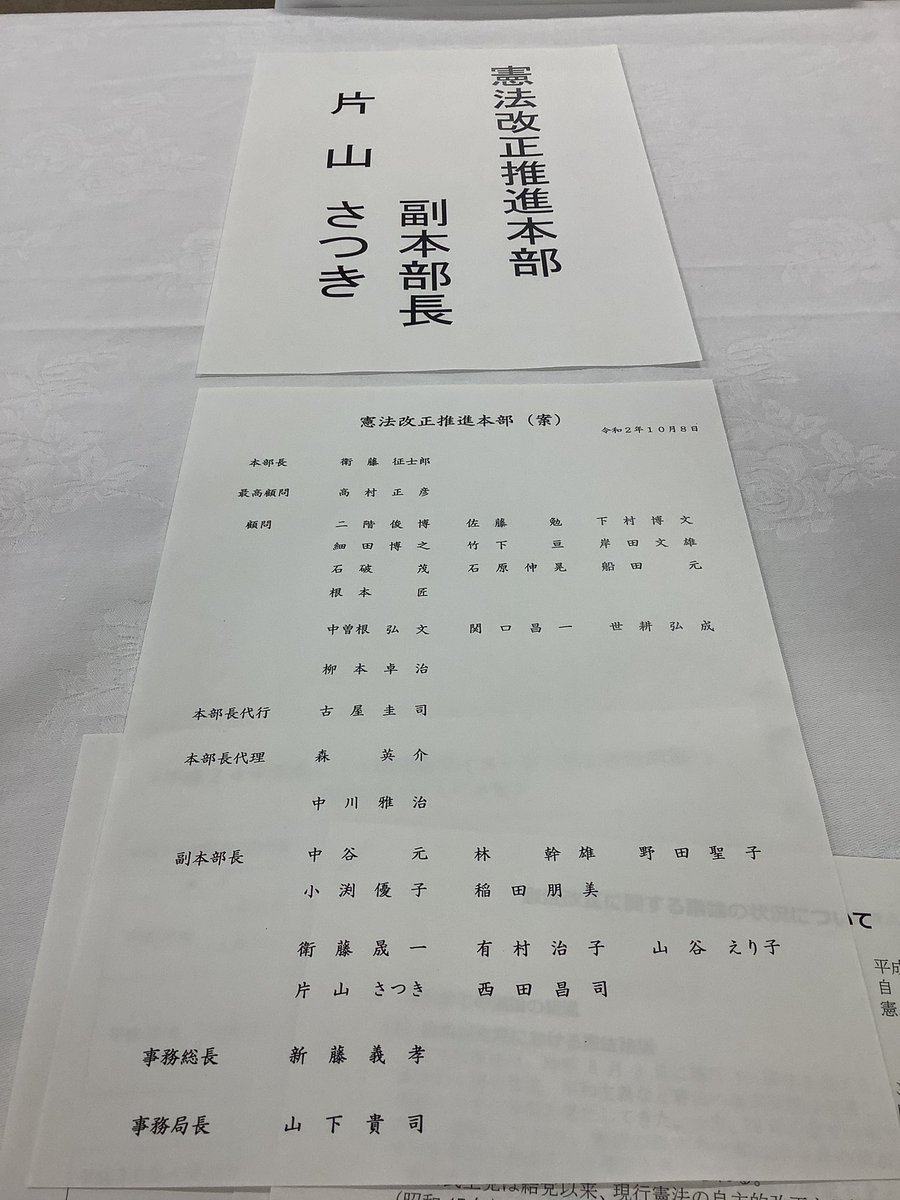 憲法改正推進本部
副本部長
片山さつき
憲法改正推進本部（案）
令和2年10月8日
本部長 衛藤征士郎
最高顧問 高村正彦
顧問 二階俊博 佐藤勉 下村博文
細田博之 竹下亘 岸田文雄
石破茂 石原伸晃 船田元
根本匠
中曽根弘文 関口昌一 世耕弘成
柳本卓治
本部長代行 古屋圭司
本部長代理 森英介
中川雅治
副本部長 中谷元 林幹雄 野田聖子
小渕優子 稲田朋美
衛藤晟一 有村治子 山谷えり子
片山さつき 西田昌司
事務総長 新藤義孝
事務局長 山下貴司
に関する議論の状況について
平成
自
憲
は結党以来、現行憲法の自主的改正